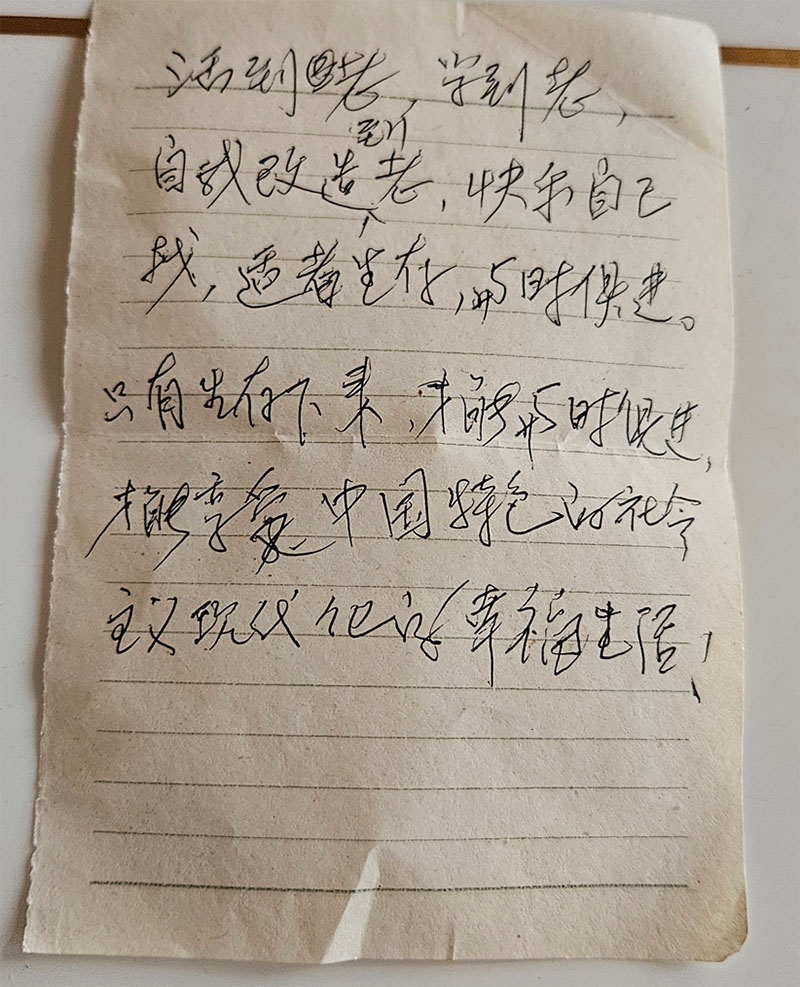 活到老，学到老，
自我改造到老，快乐自己
找，适者生存，与时俱进。
只有生存下来，才能与时俱进，
才能享受中国特色的社会
主义现代化的幸福生活！